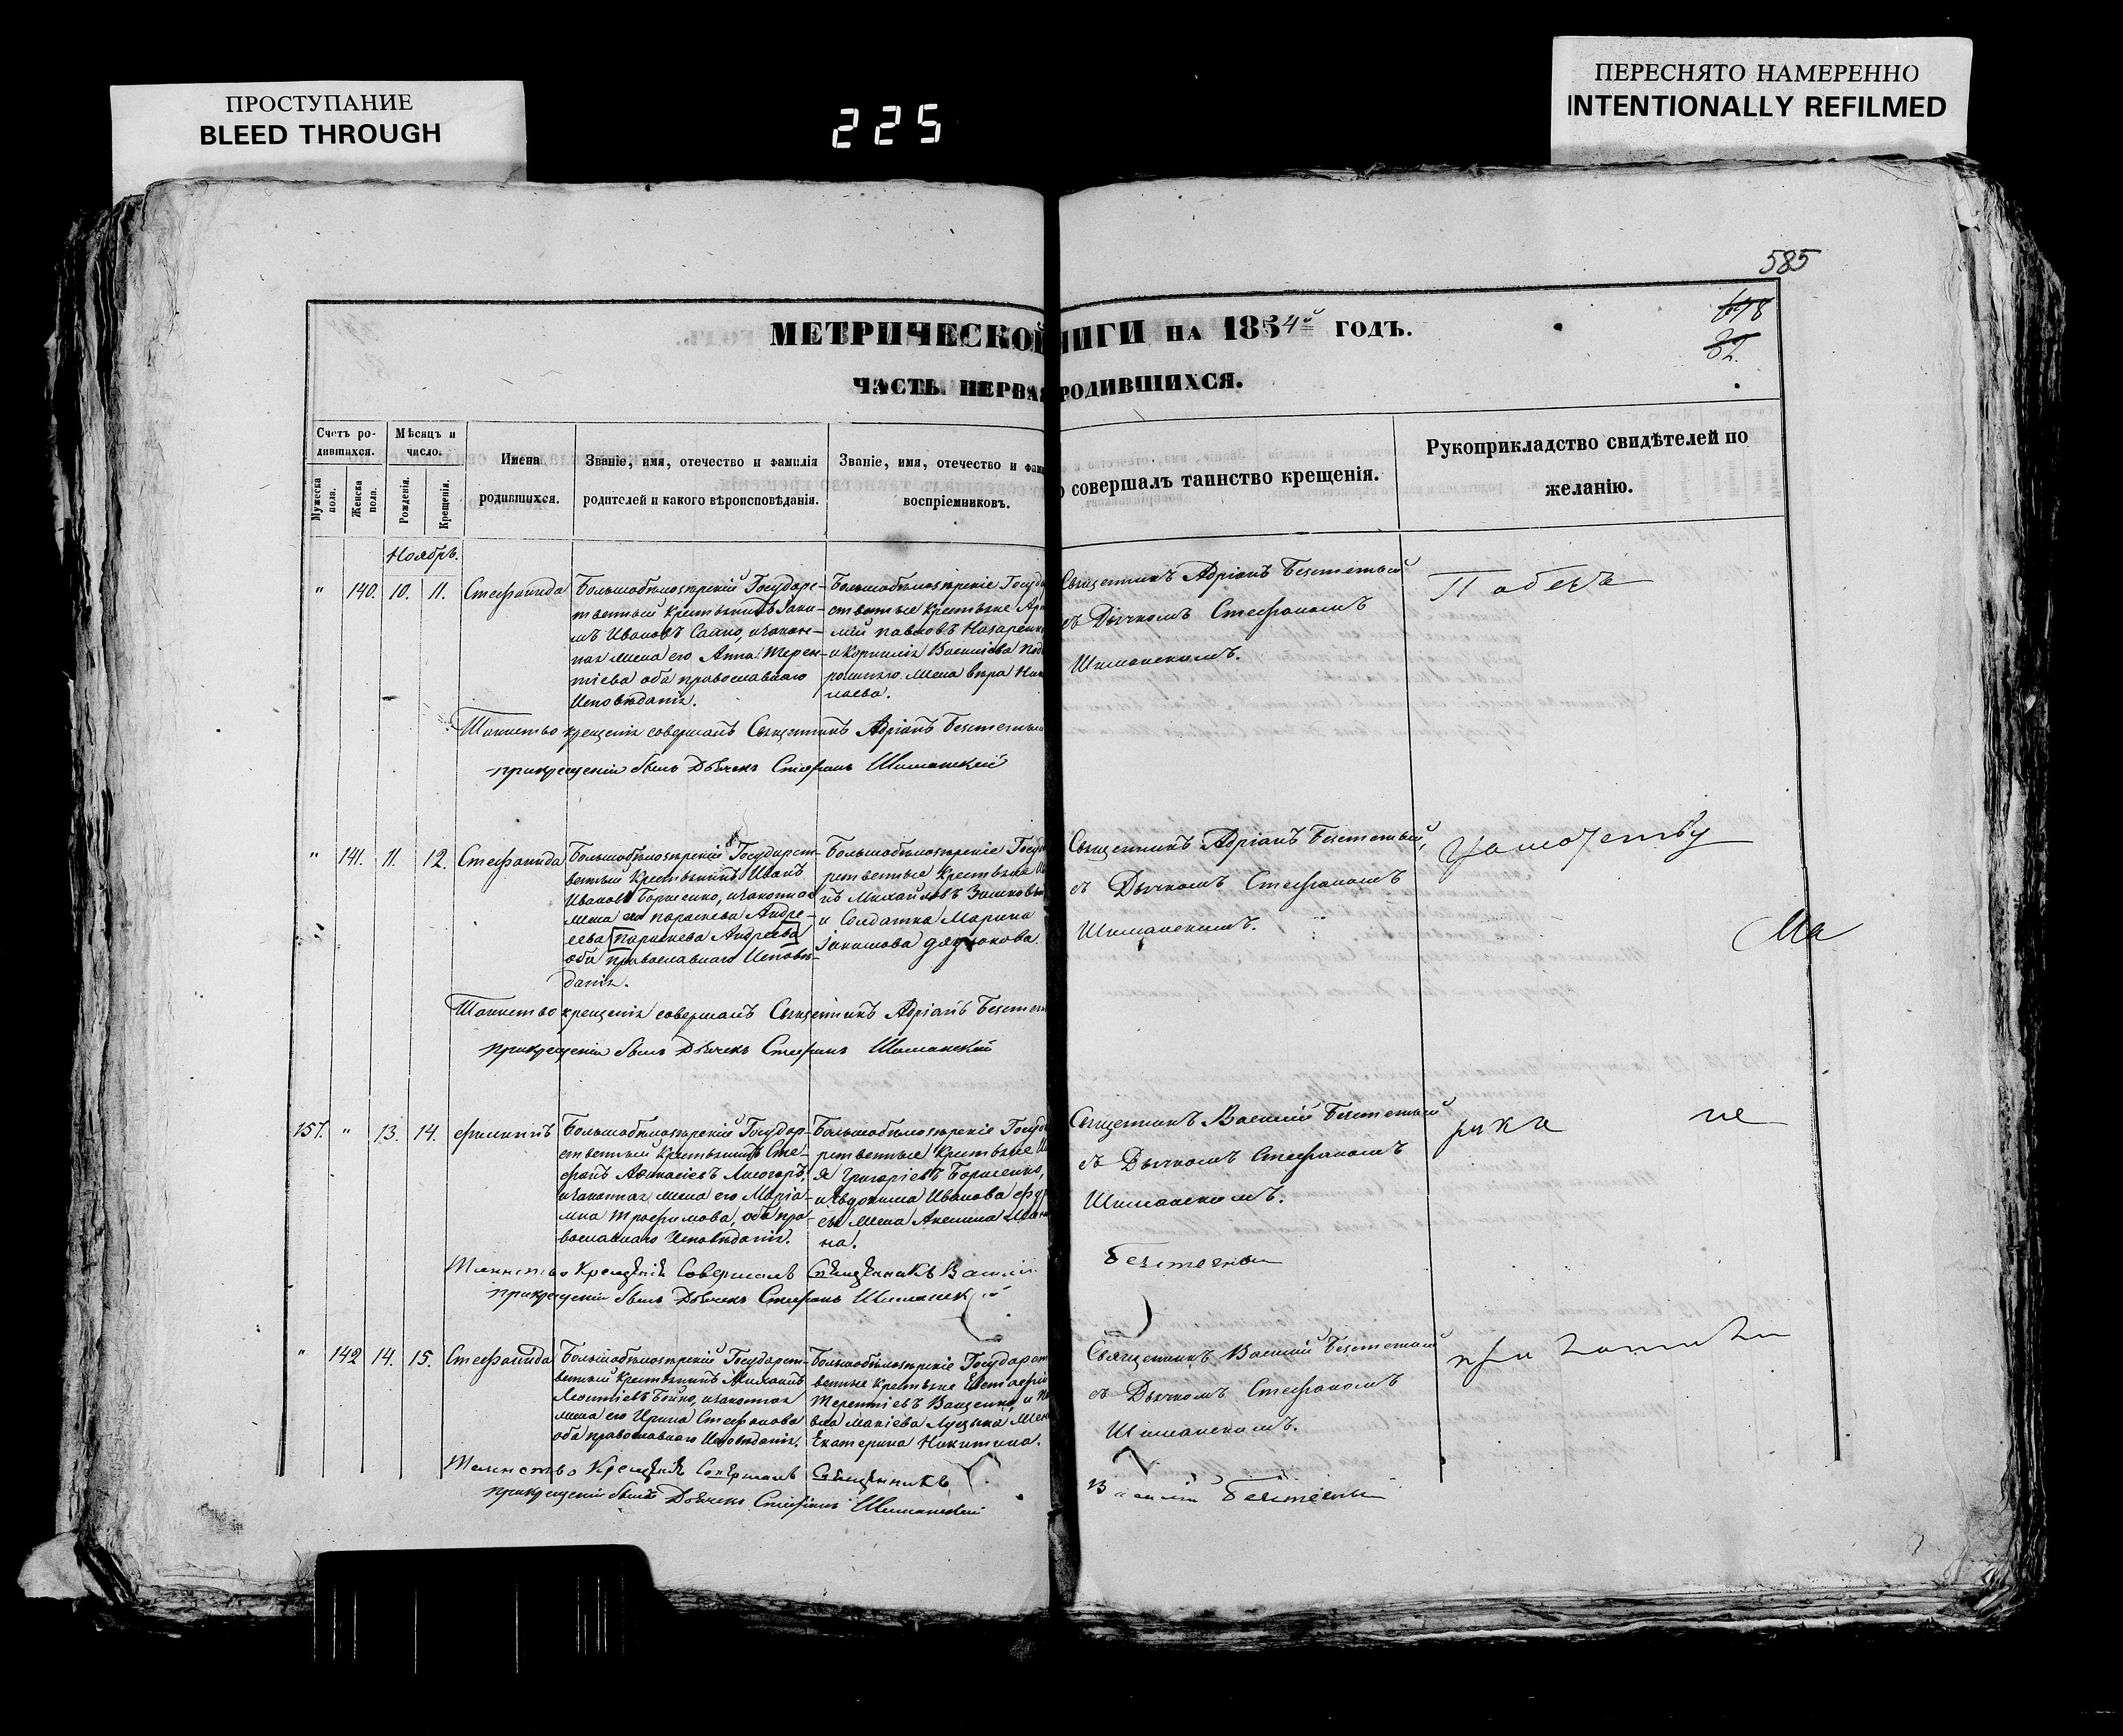 ПРОСТУПАНИЕ
BLEED THROUGH
225
ПЕРЕСНЯТО НАМЕРЕННО
INTENTIONALLY REFILMED
585
698
82.
МЕТРИЧЕСКОЙ НИГИ НА 1854й ГОДЪ.
ЧАСТЬ ПЕРВАЯ РОДИВШИХСЯ.
Счетъ ро-
дившихся.
Мужеска пола.
Женска пола.
Мѣсяцъ и
число.
Рожденія.
Крещенія.
Имена
родившихся.
Званіе, имя, отечество и фамилія
родителей и какого вѣроисповѣданія.
Званіе, имя, отечество и фами
воспріемниковъ.
о совершалъ таинство крещенія.
Рукоприкладство свидѣтелей по
желанію.
Ноябрь.
" 140. 10. 11. Стефанида
Большобѣлозѣрскій Государс-
твенный Крестьянинъ Яки-
мъ Ивановъ Сало, изакон-
ная жена его Анна Терен-
тіева оба православнаго
Исповѣданія.
Большобѣлозѣрскіе Госуда
ственные Крестьяне
мій Павловъ Назаренк
и Корнилія Василіева
жена вѣра Ник
лаева.
Священникъ Адріанъ Безсмертный
съ Дьячкомъ Стефаномъ
Шиманскимъ.
Таинство крещенія совершалъ Священникъ Адріанъ Безсмертный
прикрещеніи былъ Дьячекъ Стефанъ Шиманскій
" 141. 11. 12. Стефанида
Большобѣлозѣрскій Государст-
венный Крестьянинъ Иванъ
Ивановъ Борисенко, изаконная
жена его Параскева Андре-
ева Параскева Андреева
оба православнаго Исповѣ-
данія.
Большобѣлозѣрскіе Госуда
рственные Крестьяне
нъ Михайловъ
и Солдатка Марина
Іакимова
Священникъ Адріанъ Безсмертный,
съ Дьячкомъ Стефаномъ
Шиманскимъ.
Ма
Таинство крещенія совершалъ Священникъ Адріанъ Безсмерт
прикрещеніи былъ Дьячекъ Стефанъ Шиманскій
157. " 13. 14. Филиппъ
Большобѣлозѣрскій Государ-
ственный Крестьянинъ Сте-
фанъ Аѳанасіевъ Лисогоръ,
изаконная жена его Марія-
мна Трофимова, оба пра-
вославнаго Исповѣданія.
Большобѣлозѣрскіе Госуда
рственные Крестьяне И
я Григоріевъ Борисенко,
и Евдокима Иванова
жена Акилина
на.
Священникъ Василій Безсмертный
съ Дьячкомъ Стефаномъ
Шиманскимъ.
рука не
Таинство Крещенія Совершалъ Священникъ Василій Безсмертный
прикрещеніи былъ Дьячекъ Стефанъ Шиманскій
" 142 14. 15. Стефанида
Большобѣлозѣрскій Государст-
венный Крестьянинъ Михаилъ
Леонтіевъ Бойко, изаконная
жена его Ирина Стефанова
оба православнаго Исповѣданія.
Большобѣлозѣрскіе Государст
венные Крестьяне Евстафій
Терентіевъ Ващенко, и
вла Макіева жен
Екатерина Никитина.
Священникъ Василій Безсмертный
съ Дьячкомъ Стефаномъ
Шиманскимъ.
Таинство Крещенія Совершалъ Священникъ Василій Безсмертный
прикрещеніи былъ Дьячекъ Стефанъ Шиманскій